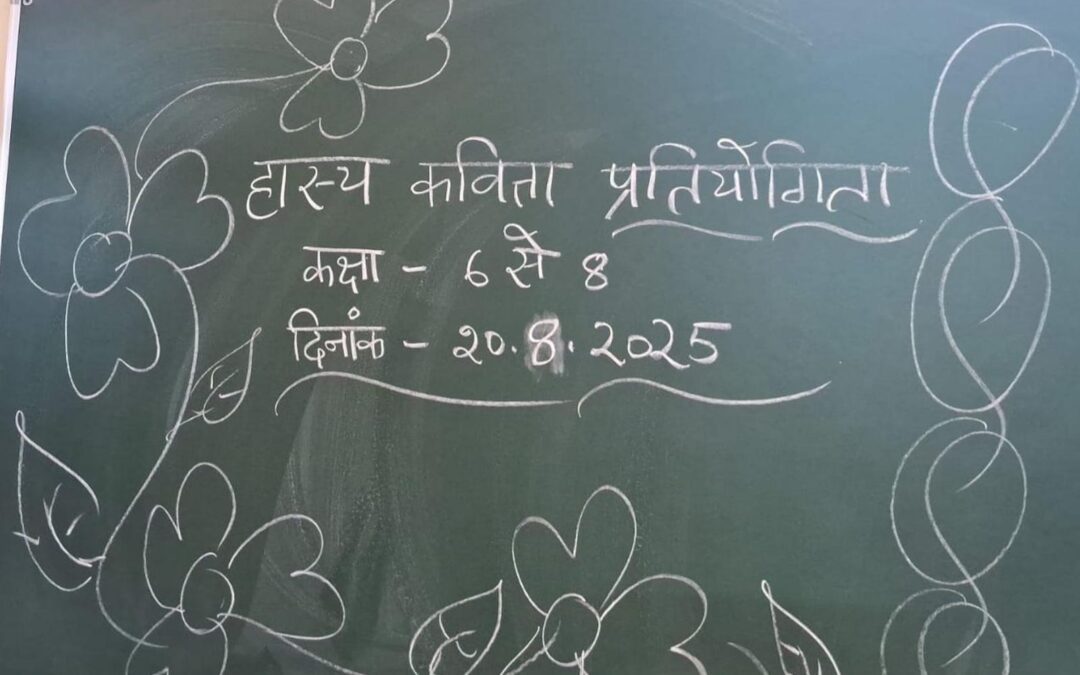 हास्य कविता प्रतियोगिता
कक्षा - 6 से 8
दिनांक - 20.8.2025